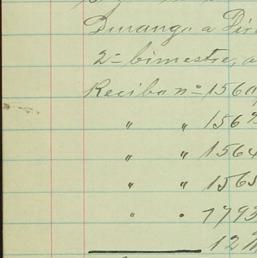 Durango a Dir
2º bimestre, a
Recibo nº 1560
" " 1562
" " 1564
" " 1565
" " 1793